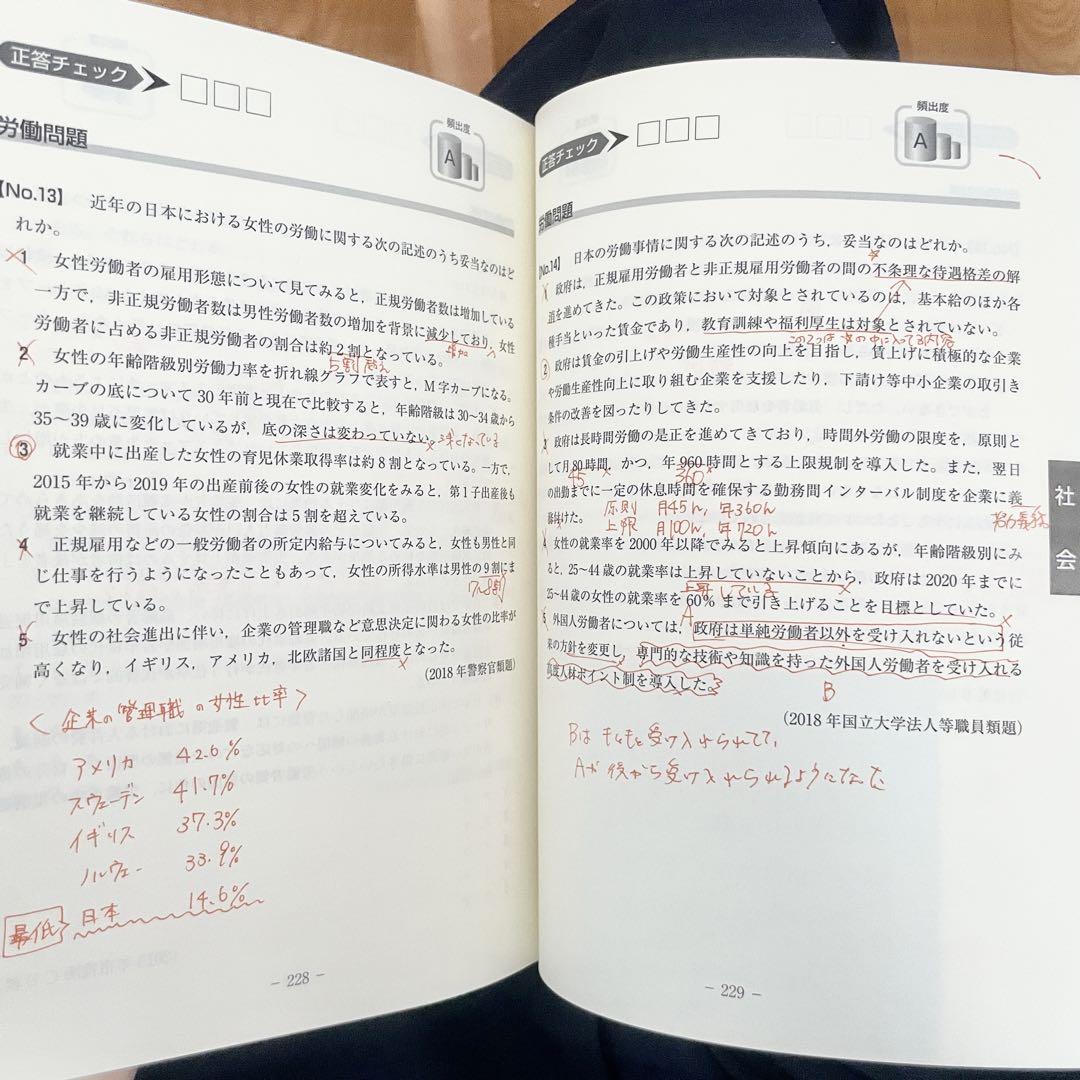 正答チェック
頻出度
A
労働問題
【No.13】 近年の日本における女性の労働に関する次の記述のうち妥当なのはど
れか。
1 女性労働者の雇用形態について見てみると，正規労働者数は増加している
一方で，非正規労働者数は男性労働者数の増加を背景に減少しており，女性
増加
労働者に占める非正規労働者の割合は約2割となっている。
5割超え
2 女性の年齢階級別労働力率を折れ線グラフで表すと，M字カーブになる。
カーブの底について30年前と現在で比較すると，年齢階級は30～34歳から
35～39歳に変化しているが，底の深さは変わっていない。
浅くなっている
3 就業中に出産した女性の育児休業取得率は約8割となっている。一方で，
2015年から2019年の出産前後の女性の就業変化をみると，第1子出産後も
就業を継続している女性の割合は5割を超えている。
4 正規雇用などの一般労働者の所定内給与についてみると，女性も男性と同
じ仕事を行うようになったこともあって，女性の所得水準は男性の9割にま
で上昇している。
7～8割
5 女性の社会進出に伴い，企業の管理職など意思決定に関わる女性の比率が
高くなり，イギリス，アメリカ，北欧諸国と同程度となった。
（2018年警察官類題）
〈企業の管理職の女性比率〉
アメリカ 42.6%
スウェーデン 41.7%
イギリス 37.3%
ノルウェー 33.9%
最低 日本 14.6%
－228－
正答チェック
頻出度
A
労働問題
【No.14】 日本の労働事情に関する次の記述のうち，妥当なのはどれか。
1 政府は，正規雇用労働者と非正規雇用労働者の間の不条理な待遇格差の解
消を進めてきた。この政策において対象とされているのは，基本給のほか各
種手当といった賃金であり，教育訓練や福利厚生は対象とされていない。
この2つは☆の中に入ってる内容
2 政府は賃金の引上げや労働生産性の向上を目指し，賃上げに積極的な企業
や労働生産性向上に取り組む企業を支援したり，下請け等中小企業の取引き
条件の改善を図ったりしてきた。
3 政府は長時間労働の是正を進めてきており，時間外労働の限度を，原則と
して月80時間，かつ，年960時間とする上限規制を導入した。また，翌日
45 360
の出勤までに一定の休息時間を確保する勤務間インターバル制度を企業に義
務付けた。
努力義務
原則 月45h，年360h
上限 月100h，年720h
4 女性の就業率を2000年以降でみると上昇傾向にあるが，年齢階級別にみ
ると，25～44歳の就業率は上昇していないことから，政府は2020年までに
上昇している
25～44歳の女性の就業率を60%まで引き上げることを目標としていた。
A
5 外国人労働者については，政府は単純労働者以外を受け入れないという従
来の方針を変更し，専門的な技術や知識を持った外国人労働者を受け入れる
高度人材ポイント制を導入した。
B
（2018年国立大学法人等職員類題）
Bはもともと受け入れられてて，
Aが後から受け入れられるようになった
社会
－229－